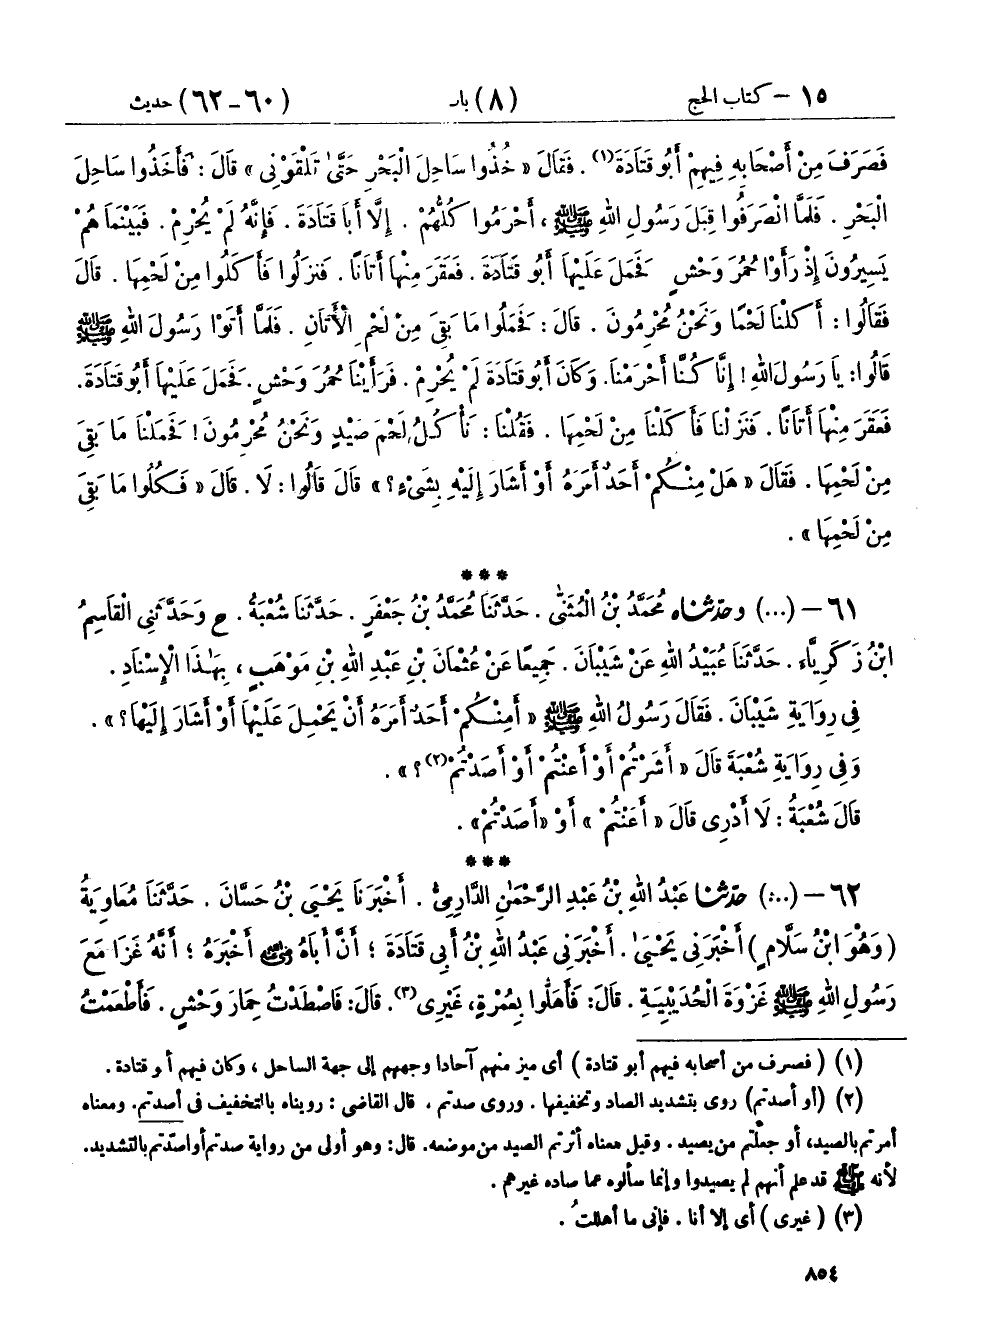 ١٥ – كتاب الحج (٨) باب (٦٠–٦٢) حديث
فَصَرَفَ مِنْ أَصْحَابِهِ فِيهِمْ أَبُو قَتَادَةَ(١) . فَقَالَ « خُذُوا سَاحِلَ الْبَحْرِ حَتَّىٰ تَلْقَوْنِي » قَالَ : فَأَخَذُوا سَاحِلَ
الْبَحْرِ . فَلَمَّا انْصَرَفُوا قِبَلَ رَسُولِ اللهِ ﷺ ، أَحْرَمُوا كُلُّهُمْ . إِلَّا أَبَا قَتَادَةَ . فَإِنَّهُ لَمْ يُحْرِمْ . فَبَيْنَمَا هُمْ
يَسِيرُونَ إِذْ رَأَوْا حُمُرَ وَحْشٍ فَحَمَلَ عَلَيْهَا أَبُو قَتَادَةَ . فَعَقَرَ مِنْهَا أَتَانًا . فَنَزَلُوا فَأَكَلُوا مِنْ لَحْمِهَا . قَالَ
فَقَالُوا : أَكَلْنَا لَحْمًا وَنَحْنُ مُحْرِمُونَ . قَالَ : فَحَمَلُوا مَا بَقِيَ مِنْ لَحْمِ الْأَتَانِ . فَلَمَّا أَتَوْا رَسُولَ اللهِ ﷺ
قَالُوا: يَا رَسُولَ اللهِ ! إِنَّا كُنَّا أَحْرَمْنَا. وَكَانَ أَبُو قَتَادَةَ لَمْ يُحْرِمْ . فَرَأَيْنَا حُمُرَ وَحْشٍ . فَحَمَلَ عَلَيْهَا أَبُو قَتَادَةَ.
فَعَقَرَ مِنْهَا أَتَانًا . فَنَزَلْنَا فَأَكَلْنَا مِنْ لَحْمِهَا . فَقُلْنَا : نَأْكُلُ لَحْمَ صَيْدٍ وَنَحْنُ مُحْرِمُونَ ! فَحَمَلْنَا مَا بَقِيَ
مِنْ لَحْمِهَا . فَقَالَ « هَلْ مِنْكُمْ أَحَدٌ أَمَرَهُ أَوْ أَشَارَ إِلَيْهِ بِشَيْءٍ ؟ » قَالَ قَالُوا : لَا . قَالَ « فَكُلُوا مَا بَقِيَ
مِنْ لَحْمِهَا » .
***
٦١ – (...) وحدّثناه مُحَمَّدُ بْنُ الْمُثَنَّىٰ . حَدَّثَنَا مُحَمَّدُ بْنُ جَعْفَرٍ . حَدَّثَنَا شُعْبَةُ . ح وَحَدَّثَنِي الْقَاسِمُ
ابْنُ زَكَرِيَّاءَ . حَدَّثَنَا عُبَيْدُ اللهِ عَنْ شَيْبَانَ . جَمِيعًا عَنْ عُثْمَانَ بْنِ عَبْدِ اللهِ بْنِ مَوْهَبٍ ، بِهَـٰذَا الْإِسْنَادِ .
فِي رِوَايَةِ شَيْبَانَ . فَقَالَ رَسُولُ اللهِ ﷺ « أَمِنْكُمْ أَحَدٌ أَمَرَهُ أَنْ يَحْمِلَ عَلَيْهَا أَوْ أَشَارَ إِلَيْهَا ؟ » .
وَفِي رِوَايَةِ شُعْبَةَ قَالَ « أَشَرْتُمْ أَوْ أَعَنْتُمْ أَوْ أَصَدْتُمْ(٢) ؟ » .
قَالَ شُعْبَةُ : لَا أَدْرِي قَالَ « أَعَنْتُمْ » أَوْ «أَصَدْتُمْ» .
***
٦٢ – (...) حدّثنا عَبْدُ اللهِ بْنُ عَبْدِ الرَّحْمَٰنِ الدَّارِمِيُّ . أَخْبَرَنَا يَحْيَى بْنُ حَسَّانَ . حَدَّثَنَا مُعَاوِيَةُ
( وَهُوَ ابْنُ سَلَّامٍ ) أَخْبَرَنِي يَحْيَىٰ . أَخْبَرَنِي عَبْدُ اللهِ بْنُ أَبِي قَتَادَةَ ؛ أَنَّ أَبَاهُ رضي الله عنه أَخْبَرَهُ ؛ أَنَّهُ غَزَا مَعَ
رَسُولِ اللهِ ﷺ غَزْوَةَ الْحُدَيْبِيَةِ . قَالَ: فَأَهَلُّوا بِعُمْرَةٍ، غَيْرِي(٣). قَالَ: فَاصْطَدْتُ حِمَارَ وَحْشٍ . فَأَطْعَمْتُ
(١) ( فصرف من أصحابه فيهم أبو قتادة ) أى ميز منهم آحادا وجههم إلى جهة الساحل ، وكان فيهم أبو قتادة .
(٢) (أو أصدتم) روى بتشديد الصاد وتخفيفها . وروى صدتم . قال القاضى : رويناه بالتخفيف فى أصدتم. ومعناه
أمرتم بالصيد، أو جعلتم من يصيد . وقيل معناه أثرتم الصيد من موضعه. قال: وهو أولى من رواية صدتم أو اصّدتم بالتشديد.
لأنه ﷺ قد علم أنهم لم يصيدوا وإنما سألوه عما صاده غيرهم .
(٣) ( غيرى ) أى إلا أنا . فإنى ما أهللتُ .
٨٥٤